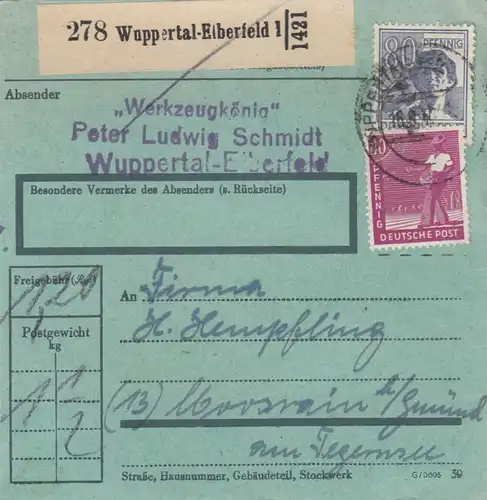 278 Wuppertal-Elberfeld 1
1421
80 PFENNIG
Absender
„Werkzeugkönig"
Peter Ludwig Schmidt
Wuppertal-Elberfeld
Besondere Vermerke des Absenders (s. Rückseite)
PFENNIG
DEUTSCHE POST
Freigebühr (ℛℳ)
1,20
An Firma
H. Hempfling
Postgewicht
kg
11 1/2
(13) Moosrain b/Gmünd
am Tegernsee
Straße, Hausnummer, Gebäudeteil, Stockwerk
G/0605 39